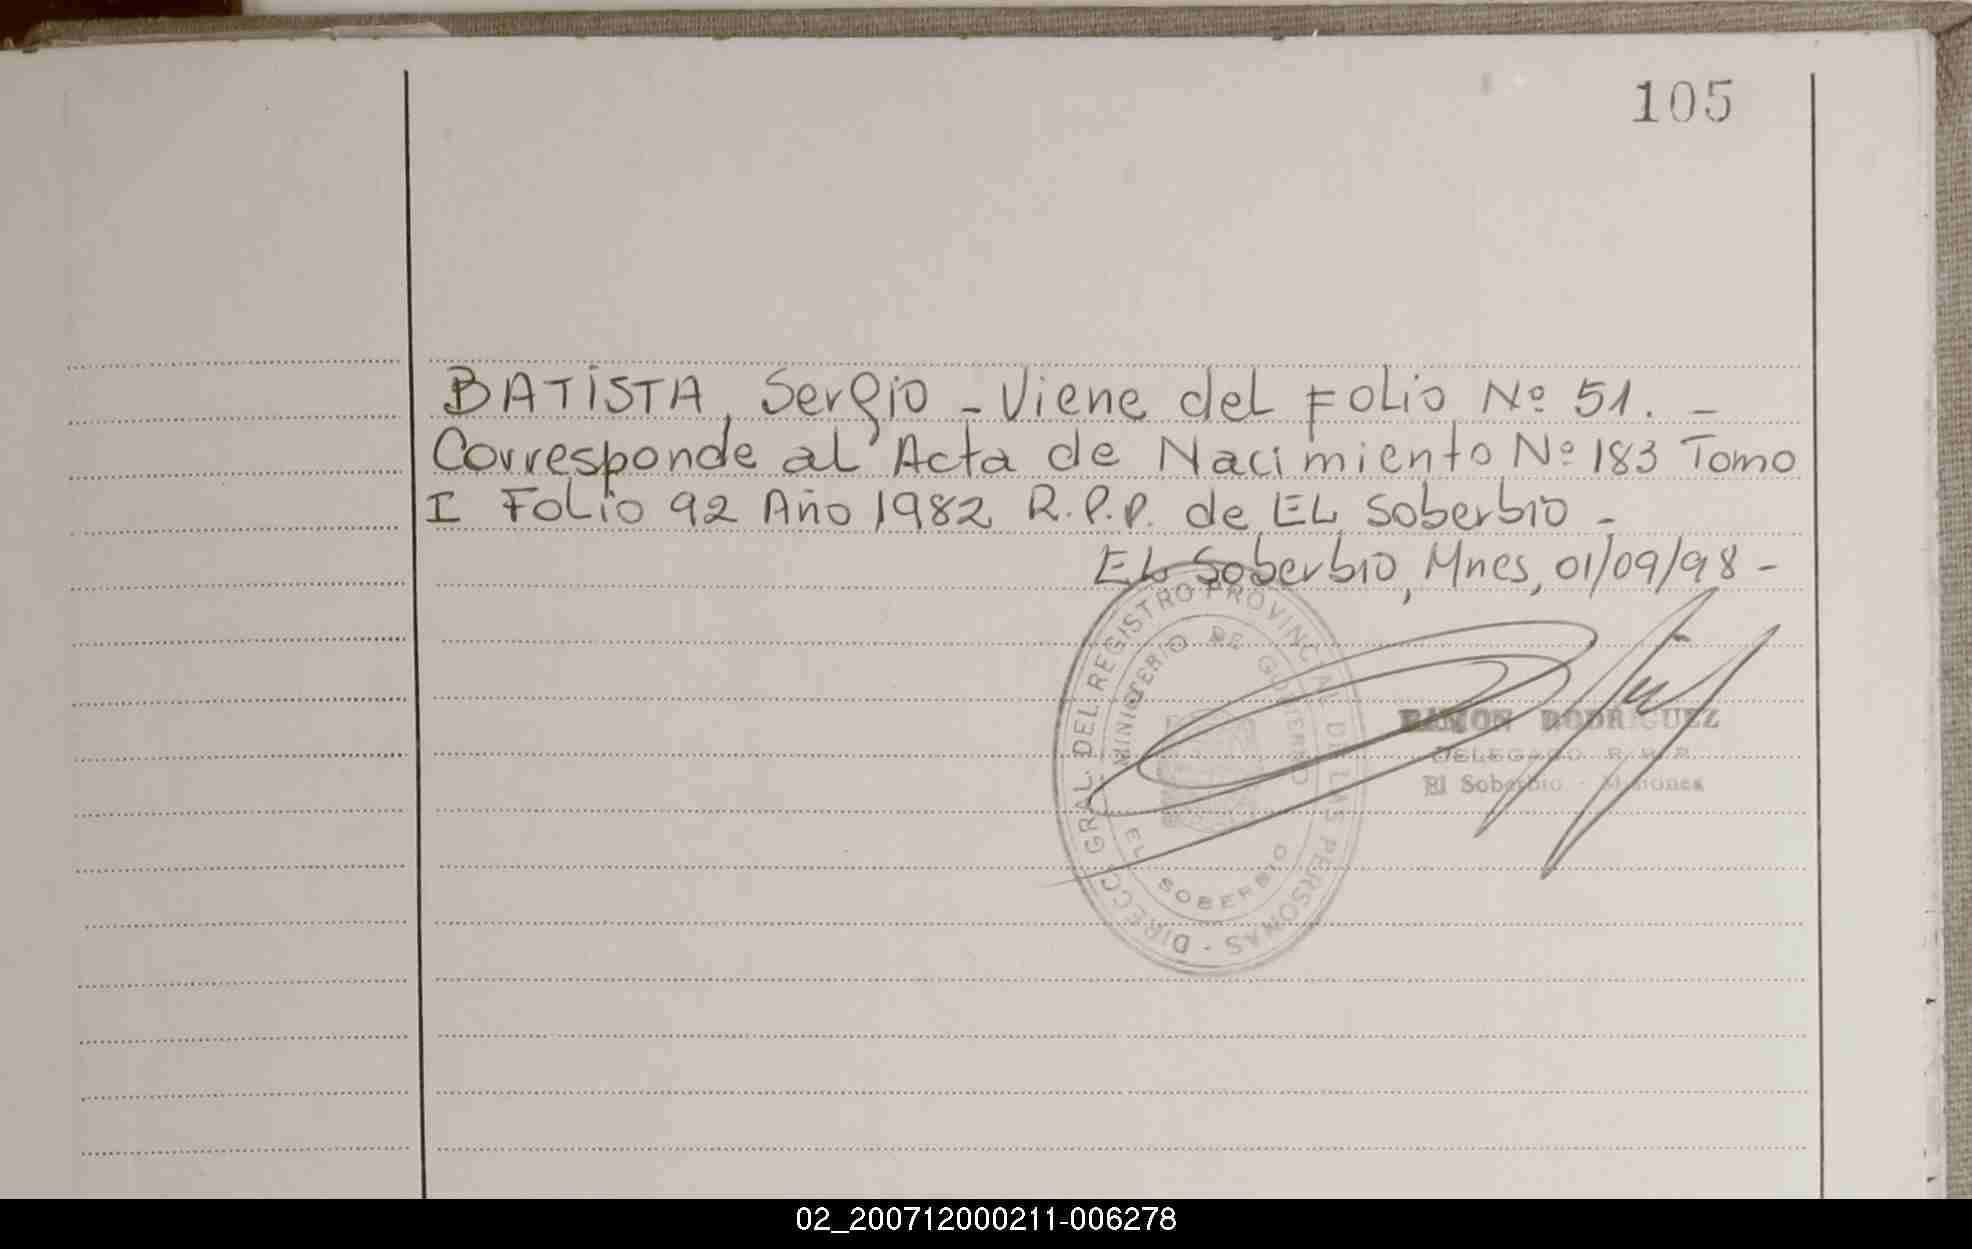 105
BATISTA, Sergio - Viene del Folio Nº 51. -
Corresponde al Acta de Nacimiento Nº 183 Tomo
I Folio 92 Año 1982 R.P.P. de EL Soberbio -
EL Soberbio, Mnes, 01/09/98 -
DIRECC. GRAL. DEL REGISTRO PROVINCIAL DE LAS PERSONAS -
MINISTERIO DE GOBIERNO
EL SOBERBIO
RAMON RODRIGUEZ
DELEGADO R. P. P.
El Soberbio - Misiones
02_200712000211-006278